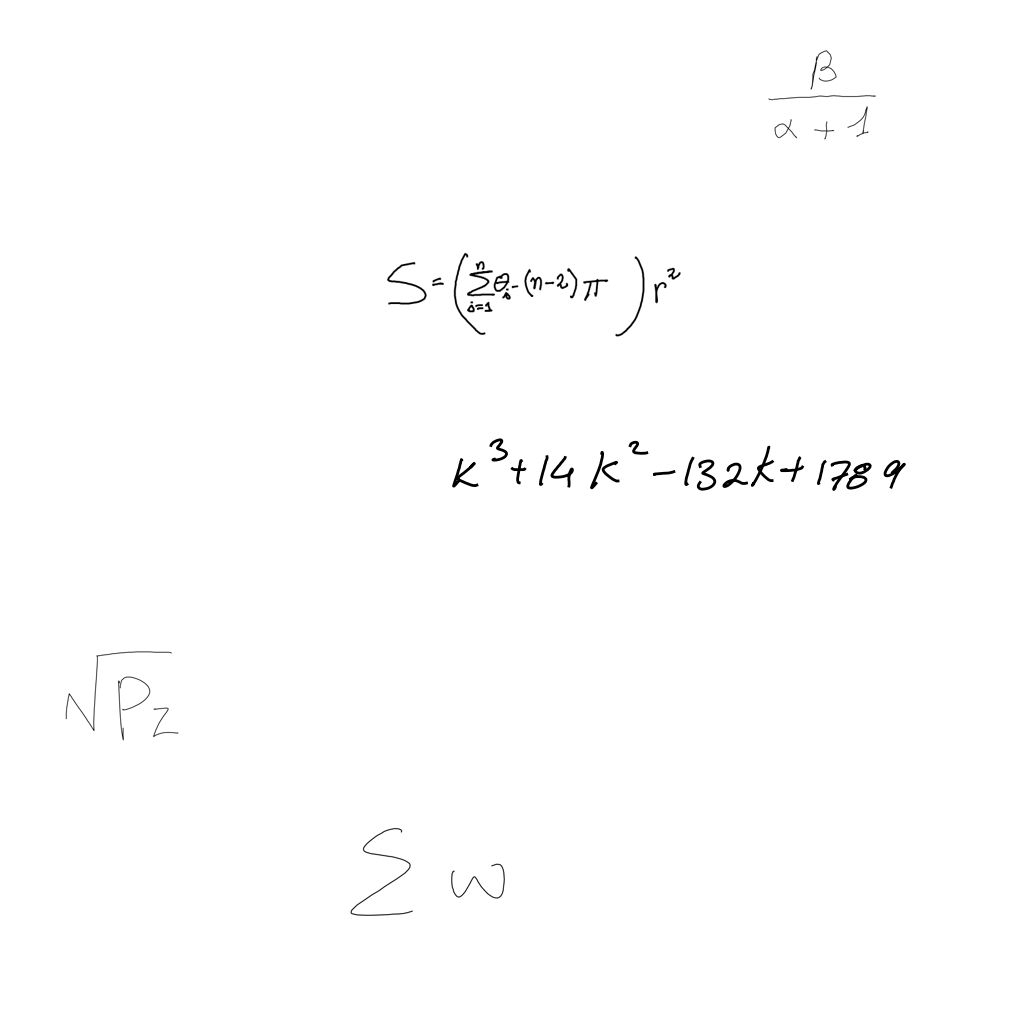 \frac{\beta}{\alpha + 1}
S = \left( \sum_{i=1}^{n} \theta_i - (n-2) \pi \right) r^2
k^3 + 14k^2 - 132k + 1789
\sqrt{p_z}
\sum \omega